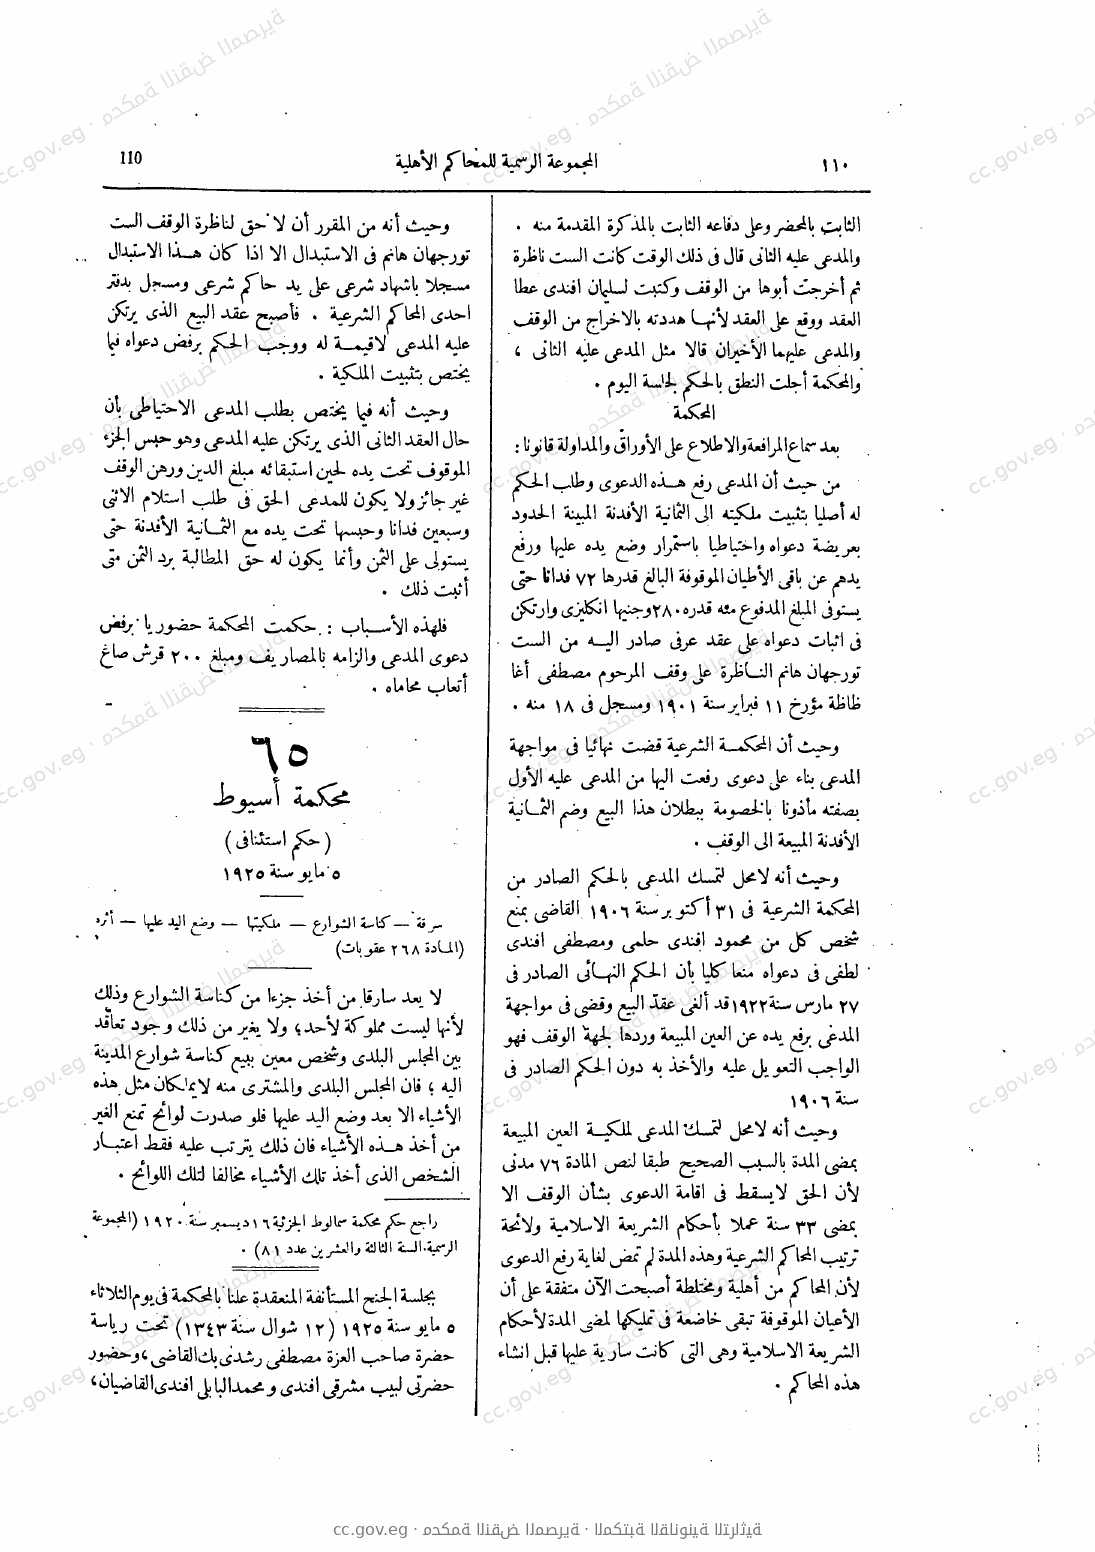 ١١٠
المجموعة الرسمية للمحاكم الأهلية
110
الثابت بالمحضر وعلى دفاعه الثابت بالمذكرة المقدمة منه .
والمدعى عليه الثانى قال فى ذلك الوقت كانت الست ناظرة
ثم أخرجت أبوها من الوقف وكتبت لسليمان افندى عطا
العقد ووقع على العقد لأنها هددته بالاخراج من الوقف
والمدعى عليهما الأخيران قالا مثل المدعى عليه الثانى ،
والمحكمة أجلت النطق بالحكم لجلسة اليوم .
المحكمة
بعد سماع المرافعة والاطلاع على الأوراق والمداولة قانونا :
من حيث أن المدعى رفع هذه الدعوى وطلب الحكم
له أصليا بتثبيت ملكيته الى الثمانية الأفدنة المبينة الحدود
بعريضة دعواه واحتياطيا باستمرار وضع يده عليها ورفع
يدهم عن باقى الأطيان الموقوفة البالغ قدرها ٧٢ فدانا حتى
يستوفى المبلغ المدفوع منه قدره ٢٨٠ وجنيها انكليزى وارتكن
فى اثبات دعواه على عقد عرفى صادر اليه من الست
تورجهان هانم الناظرة على وقف المرحوم مصطفى أغا
ظاظة مؤرخ ١١ فبراير سنة ١٩٠١ ومسجل فى ١٨ منه .
وحيث أن المحكمة الشرعية قضت نهائيا فى مواجهة
المدعى بناء على دعوى رفعت اليها من المدعى عليه الأول
بصفته مأذونا بالخصومة ببطلان هذا البيع وضم الثمانية
الأفدنة المبيعة الى الوقف .
وحيث أنه لا محل لتمسك المدعى بالحكم الصادر من
المحكمة الشرعية فى ٣١ أكتوبر سنة ١٩٠٦ القاضى بمنع
شخص كل من محمود افندى حلمى ومصطفى افندى
لطفى فى دعواه منعا كليا بأن الحكم النهائى الصادر فى
٢٧ مارس سنة ١٩٢٢ قد ألغى عقد البيع وقضى فى مواجهة
المدعى برفع يده عن العين المبيعة وردها لجهة الوقف فهو
الواجب التعويل عليه والأخذ به دون الحكم الصادر فى
سنة ١٩٠٦
وحيث أنه لا محل لتمسك المدعى لملكية العين المبيعة
بمضى المدة بالسبب الصحيح طبقا لنص المادة ٧٦ مدنى
لأن الحق لا يسقط فى اقامة الدعوى بشأن الوقف الا
بمضى ٣٣ سنة عملا بأحكام الشريعة الاسلامية ولائحة
ترتيب المحاكم الشرعية وهذه المدة لم تمض لغاية رفع الدعوى
لأن المحاكم من أهلية ومختلطة أصبحت الآن متفقة على أن
الأعيان الموقوفة تبقى خاضعة فى تمليكها لمضى المدة لأحكام
الشريعة الاسلامية وهى التى كانت سارية عليها قبل انشاء
هذه المحاكم .
وحيث أنه من المقرر أن لا حق لناظرة الوقف الست
تورجهان هانم فى الاستبدال الا اذا كان هذا الاستبدال
مسجلا باشهاد شرعى على يد حاكم شرعى ومسجل بدفتر
احدى المحاكم الشرعية . فأصبح عقد البيع الذى يرتكن
عليه المدعى لا قيمة له ووجب الحكم برفض دعواه فيما
يختص بتثبيت الملكية .
وحيث أنه فيما يختص بطلب المدعى الاحتياطى بأن
حال العقد الثانى الذى يرتكن عليه المدعى وهو حبس الجزء
الموقوف تحت يده لحين استبقائه مبلغ الدين ورهن الوقف
غير جائز ولا يكون للمدعى الحق فى طلب استلام الاثنى
وسبعين فدانا وحبسها تحت يده مع الثمانية الأفدنة حتى
يستولى على الثمن وأنما يكون له حق المطالبة برد الثمن متى
أثبت ذلك .
فلهذه الأسباب : حكمت المحكمة حضوريا برفض
دعوى المدعى والزامه بالمصاريف ومبلغ ٢٠٠ قرش صاغ
أتعاب محاماه .
٦٥
محكمة أسيوط
(حكم استئنافى)
٥ مايو سنة ١٩٢٥
سرقة — كناسة الشوارع — ملكيتها — وضع اليد عليها — أثره
(المادة ٢٦٨ عقوبات)
لا يعد سارقا من أخذ جزءا من كناسة الشوارع وذلك
لأنها ليست مملوكة لأحد ؛ ولا يغير من ذلك وجود تعاقد
بين المجلس البلدى وشخص معين ببيع كناسة شوارع المدينة
اليه ؛ فان المجلس البلدى والمشترى منه لا يملكان مثل هذه
الأشياء الا بعد وضع اليد عليها فلو صدرت لوائح تمنع الغير
من أخذ هذه الأشياء فان ذلك يترتب عليه فقط اعتبار
الشخص الذى أخذ تلك الأشياء مخالفا لتلك اللوائح .
راجع حكم محكمة سمالوط الجزئية ١٦ ديسمبر سنة ١٩٢٠ (المجموعة
الرسمية السنة الثالثة والعشرين عدد ٨١) .
بجلسة الجنح المستأنفة المنعقدة علنا بالمحكمة فى يوم الثلاثاء
٥ مايو سنة ١٩٢٥ (١٢ شوال سنة ١٣٤٣) تحت رياسة
حضرة صاحب العزة مصطفى رشدى بك القاضى ، وحضور
حضرتى لبيب مشرقى افندى ومحمد البابلى افندى القاضيان ،
cc.gov.eg · محكمة النقض المصرية · المكتبة القانونية التراثية